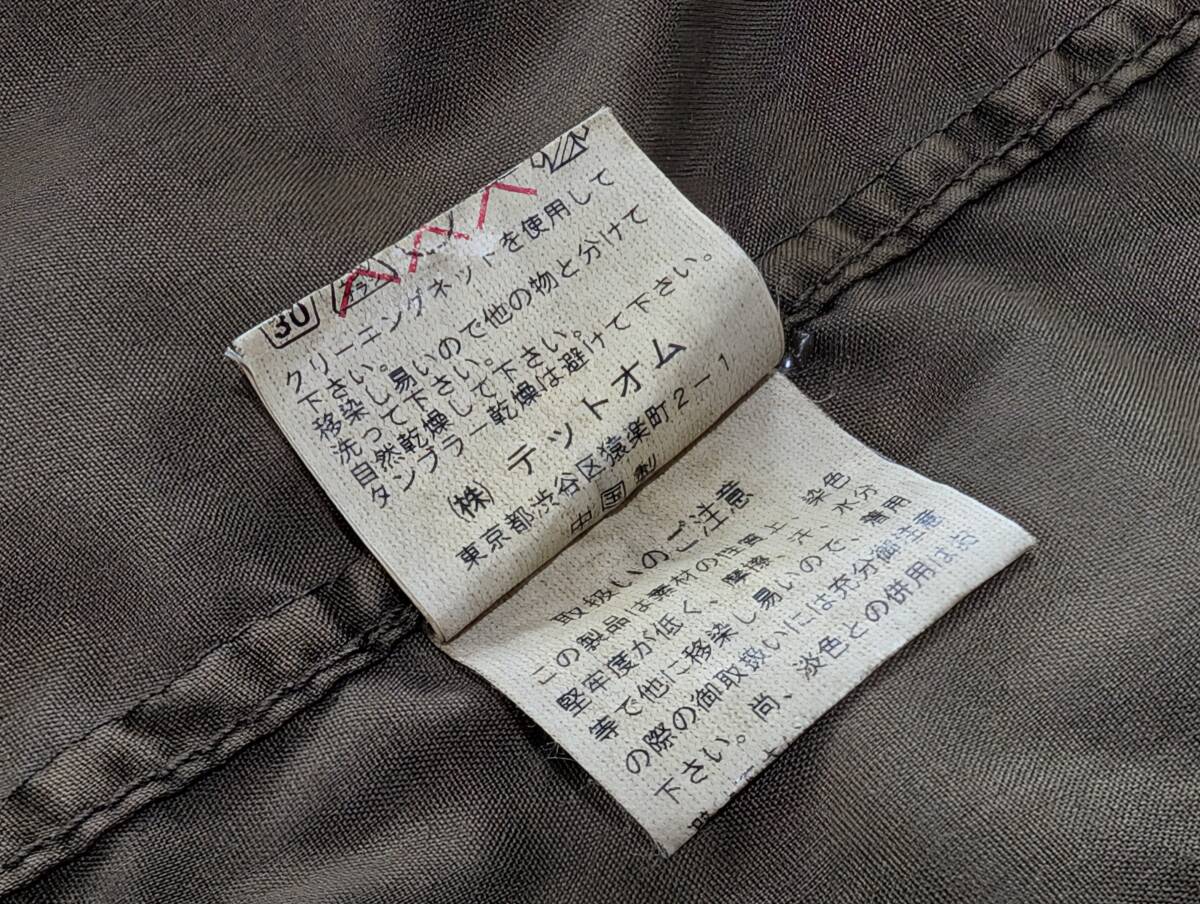 30
クリーニングネットを使用して
下さい。
移染し易いので他の物と分けて
洗って下さい。
自然乾燥して下さい。
タンブラー乾燥は避けて下さい。
(株) テットオム
東京都渋谷区猿楽町2-1
中国製
取扱いのご注意
この製品は素材の性質上、染色
堅牢度が低く、摩擦、汗、水分
等で他に移染し易いので、着用
の際の御取扱いには充分御注意
下さい。尚、淡色との併用はお